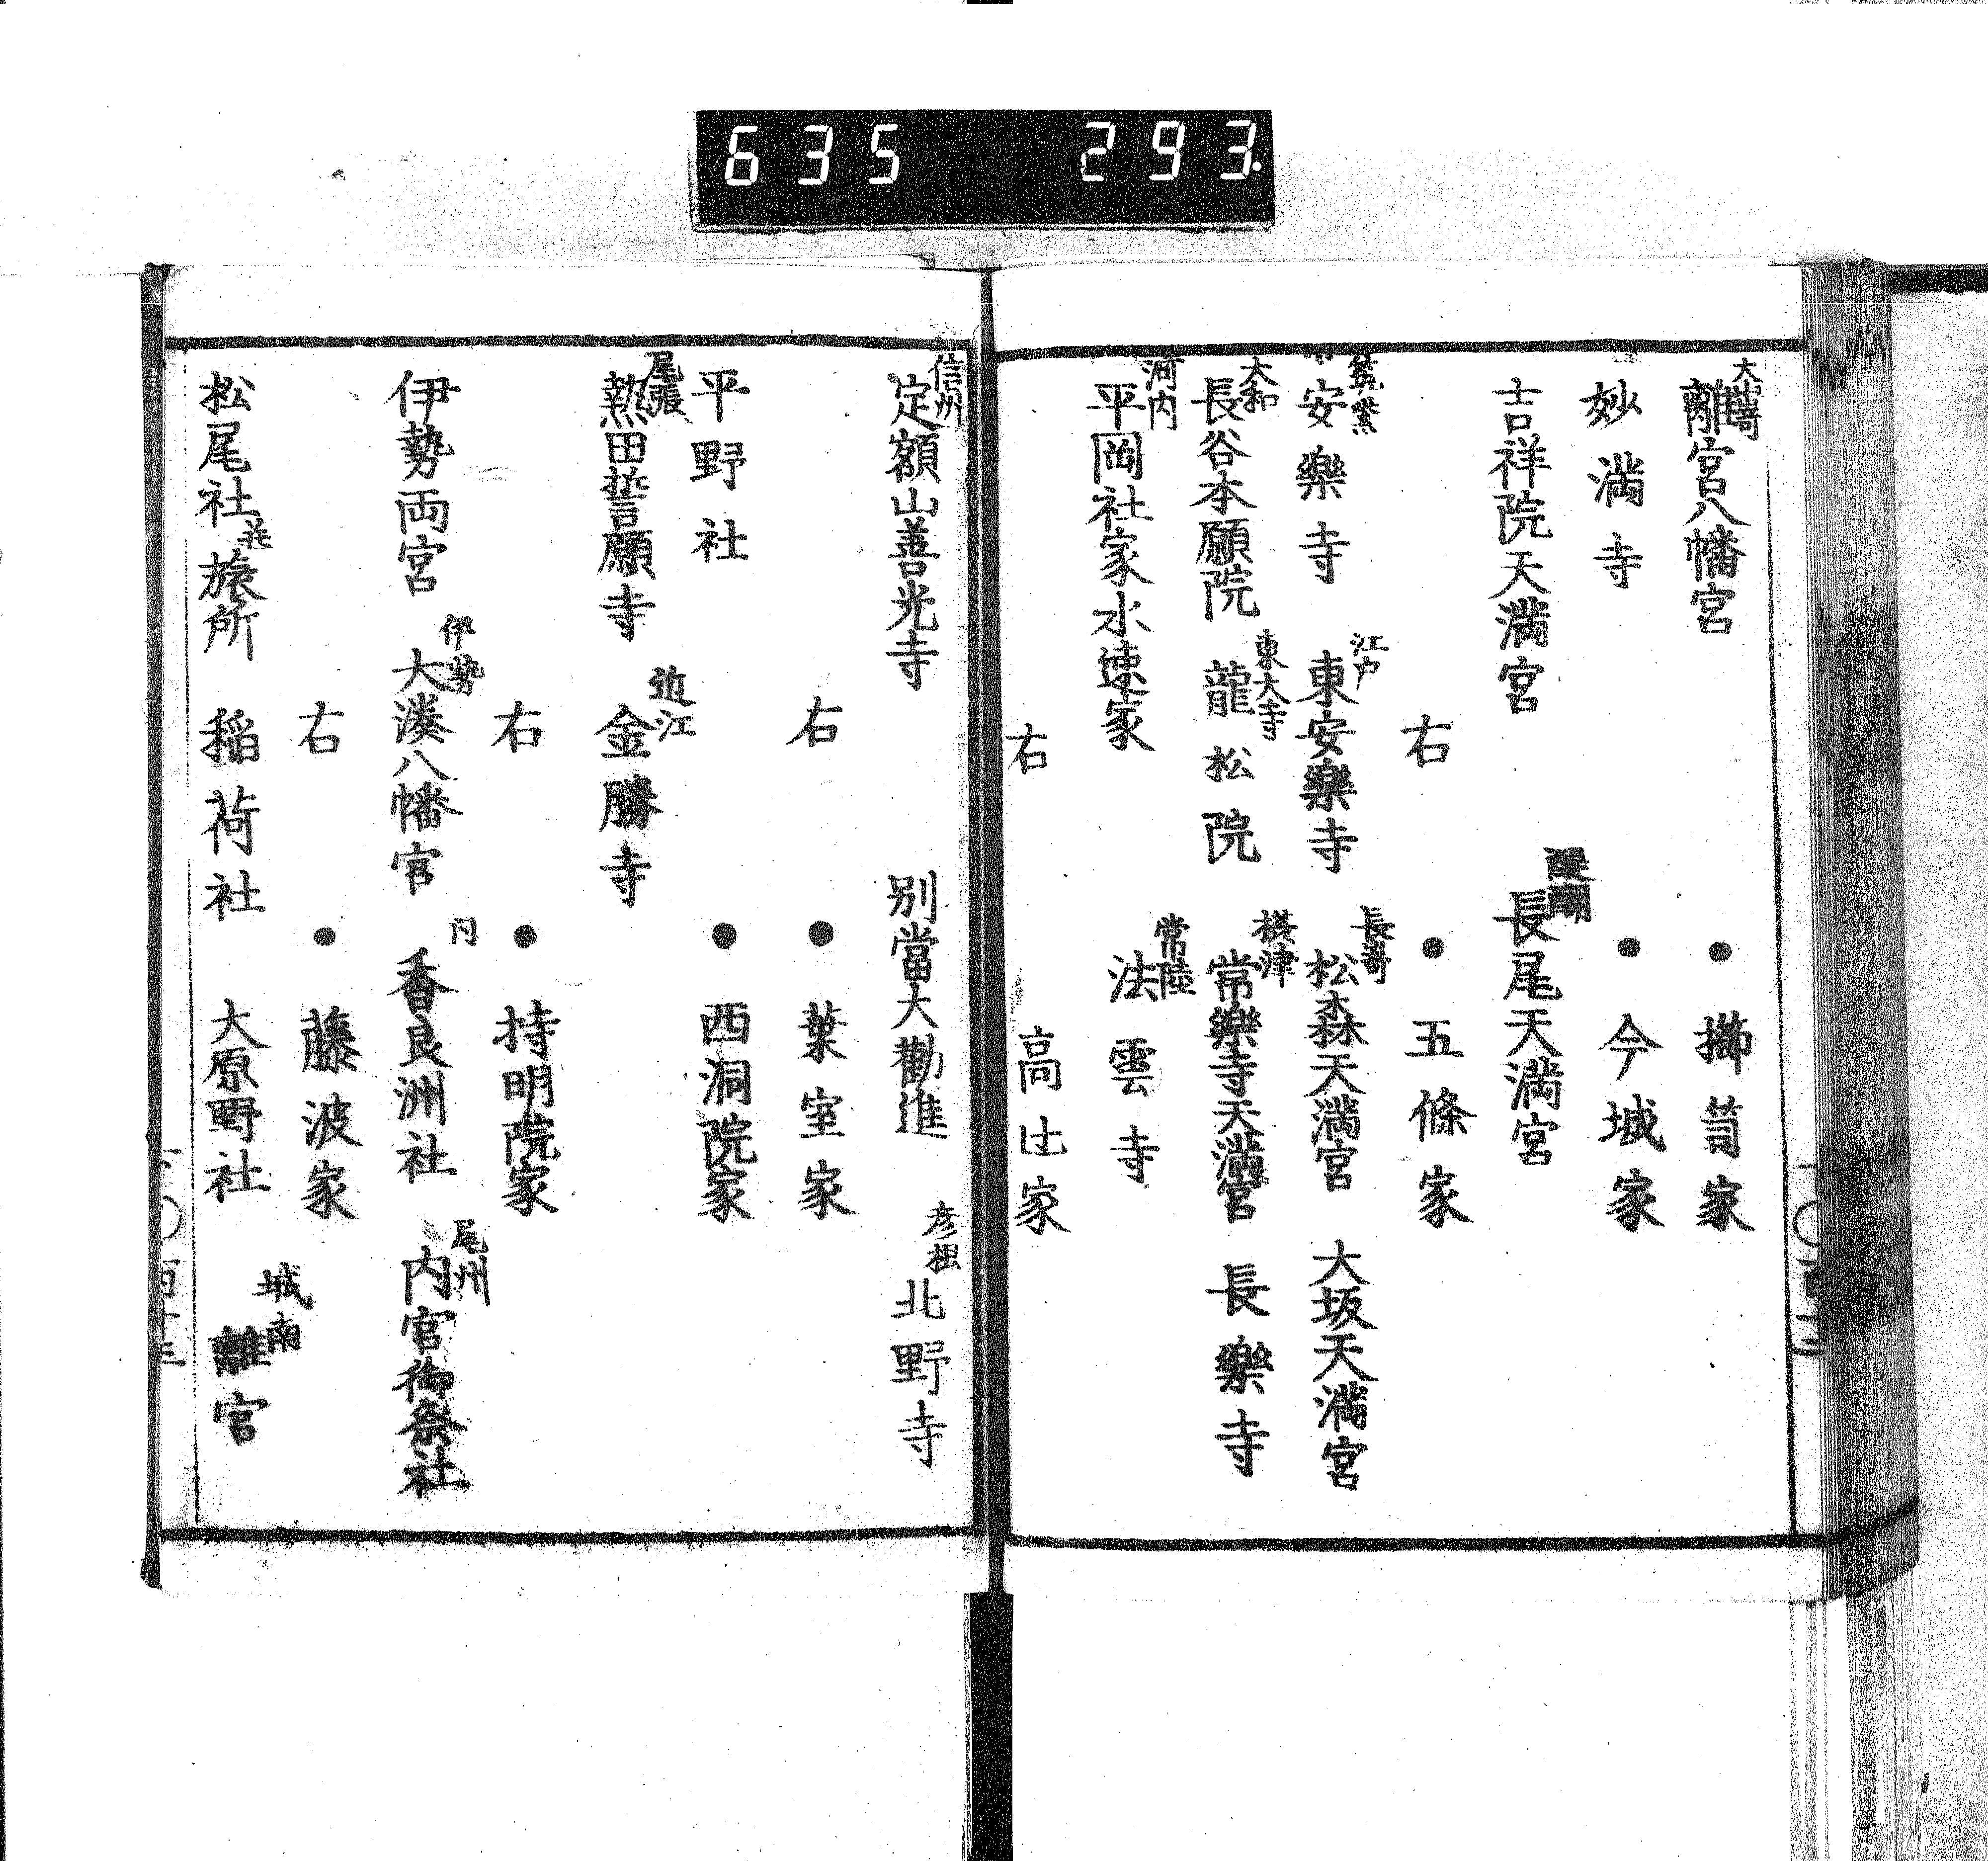 635 293
大山崎離宮八幡宮 ●櫛笥家
妙満寺 ●今城家
吉祥院天満宮 醍醐長尾天満宮
右 ●五條家
筑紫安樂寺 江戸東安樂寺 長嵜松森天満宮 大坂天満宮
大和長谷本願院 東大寺龍松院 摂津常樂寺天満宮 長樂寺
河内平岡社家水速家 常陸法雲寺
右 高辻家
信州定額山善光寺 別當大勸進 彦根北野寺
右 ●葉室家
平野社 ●西洞院家
尾張熱田誓願寺 近江金勝寺
右 ●持明院家
伊勢両宮 伊勢大湊八幡宮 同香良洲社 尾州内宮御祭社
右 ●藤波家
松尾社并旅所 稲荷社 大原野社 城南離宮